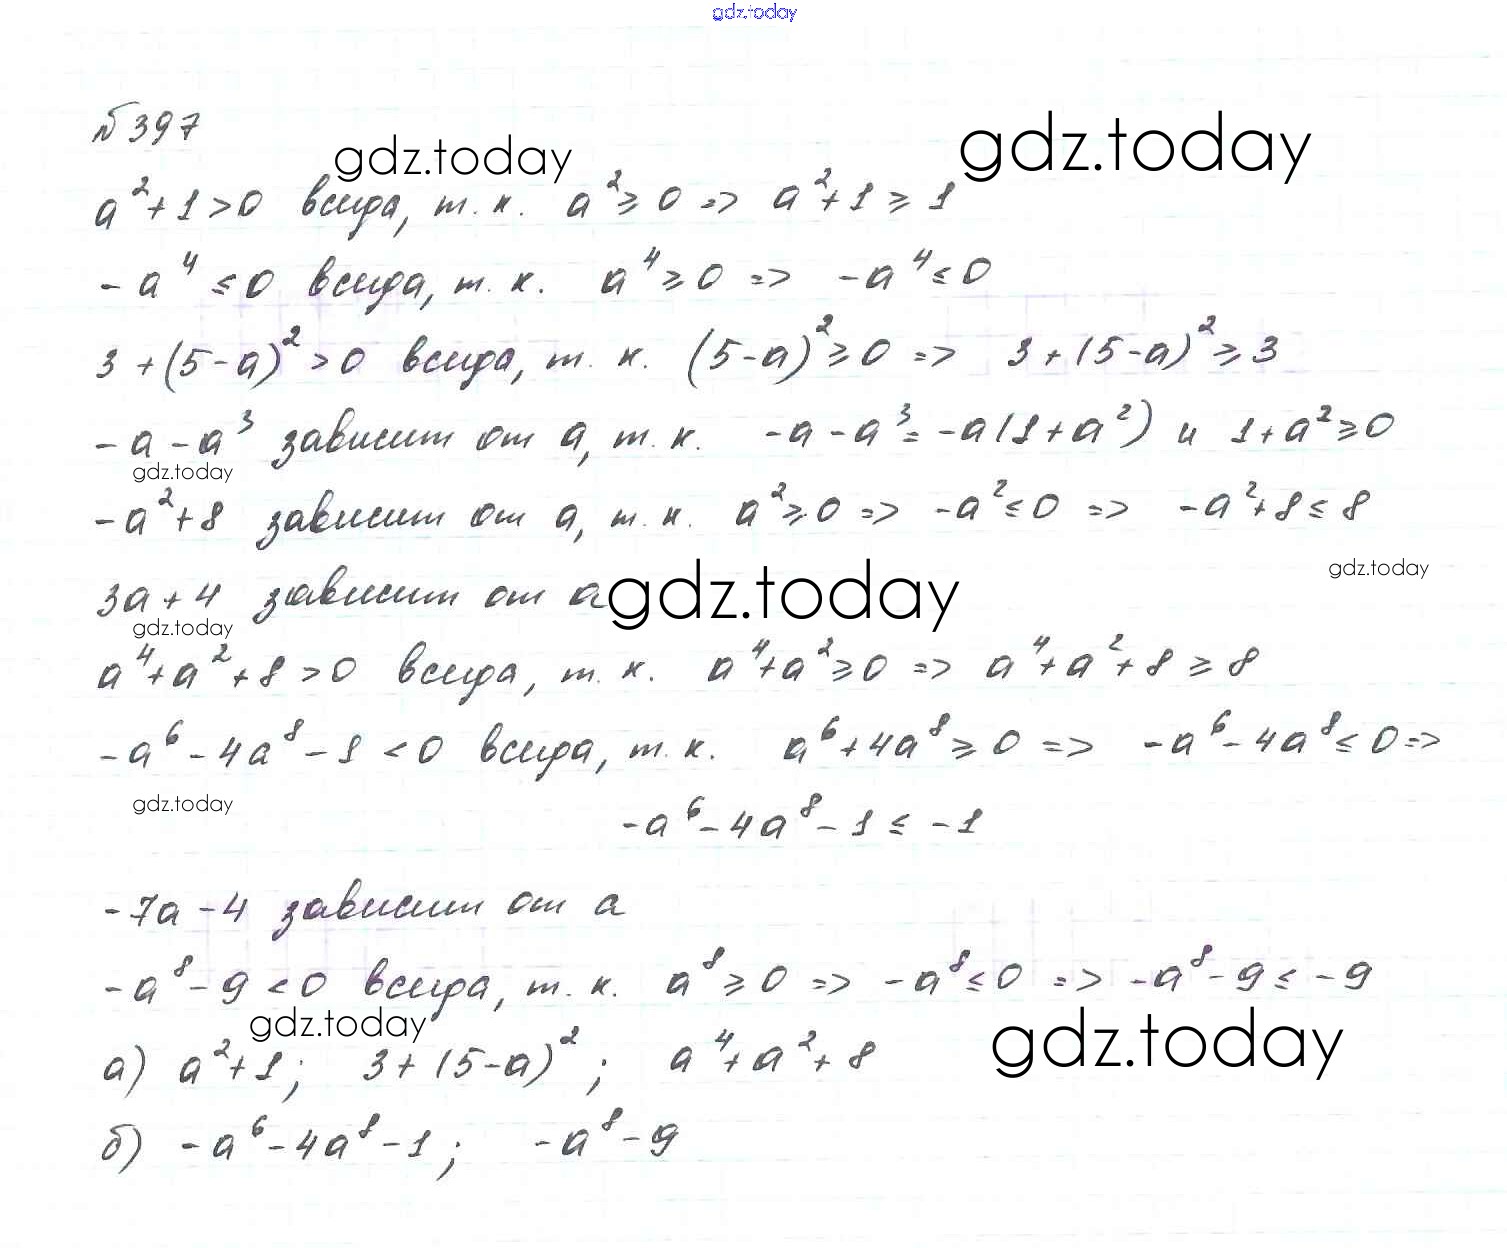 gdz.today
№397
gdz.today
gdz.today
a²+1>0 всегда, т. к. a²≥0 => a²+1≥1
-a⁴≤0 всегда, т. к. a⁴≥0 => -a⁴≤0
3+(5-a)²>0 всегда, т. к. (5-a)²≥0 => 3+(5-a)²≥3
-a-a³ зависит от a, т. к. -a-a³=-a(1+a²) и 1+a²≥0
gdz.today
-a²+8 зависит от a, т. к. a²≥0 => -a²≤0 => -a²+8≤8
gdz.today
3a+4 зависит от a
gdz.today
gdz.today
a⁴+a²+8>0 всегда, т. к. a⁴+a²≥0 => a⁴+a²+8≥8
-a⁶-4a⁸-1<0 всегда, т. к. a⁶+4a⁸≥0 => -a⁶-4a⁸≤0 =>
gdz.today
-a⁶-4a⁸-1≤-1
-7a-4 зависит от a
-a⁸-9<0 всегда, т. к. a⁸≥0 => -a⁸≤0 => -a⁸-9≤-9
gdz.today
gdz.today
а) a²+1; 3+(5-a)²; a⁴+a²+8
б) -a⁶-4a⁸-1; -a⁸-9